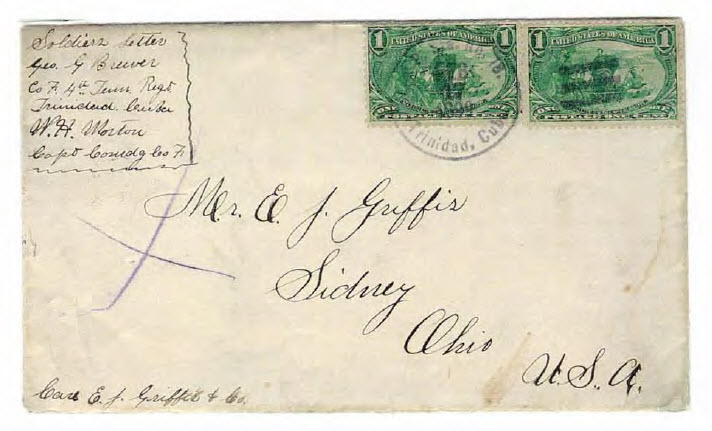 Soldiers Letter
Geo. G Brewer
Co F. 4th Tenn Regt
Trinidad Cuba
W. H. Morton
Capt Comdg Co F.
1 UNITED STATES OF AMERICA 1
1 UNITED STATES OF AMERICA 1
Trinidad, Cuba
Mr. E. J. Griffis
Sidney
Ohio
U.S.A.
Care E. J. Griffis & Co.